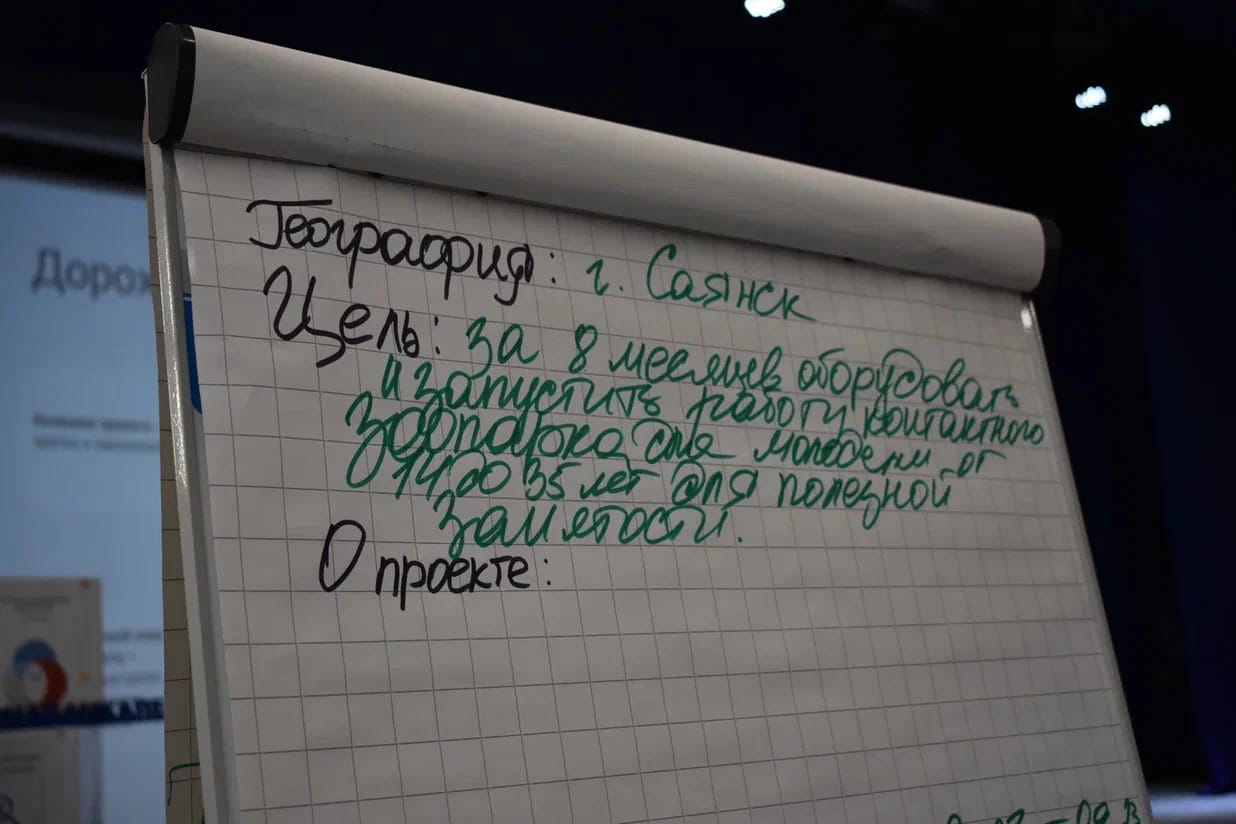 География: г. Саянск
Цель: за 8 месяцев оборудовать
и запустить работу контактного
зоопарка для молодежи от
14 до 35 лет для полезной
занятости.
О проекте:
Дорож